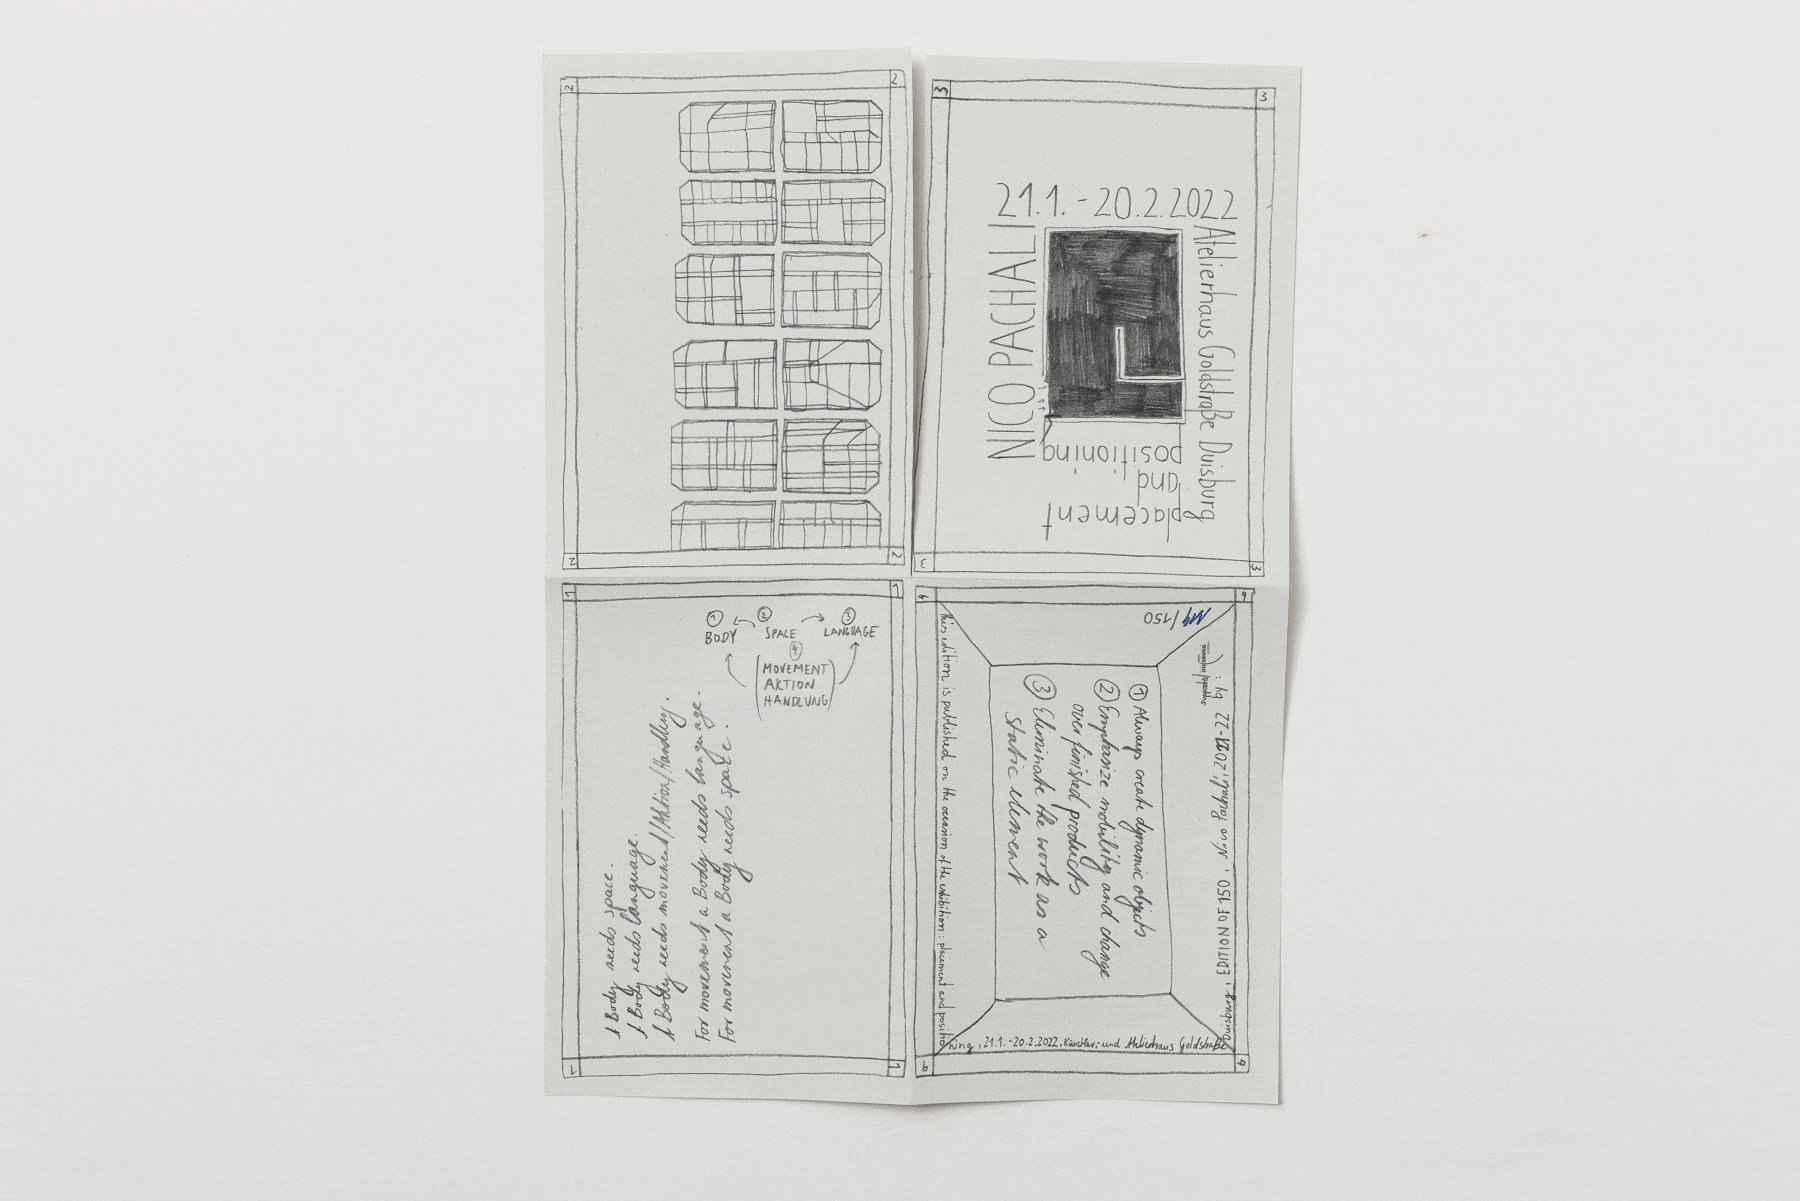 2
2
2
2
3
3
3
3
21.1.-20.2.2022
Atelierhaus Goldstraße Duisburg
NICO PACHALI
placement
and
positioning
1
1
1
1
① ② ③
BODY SPACE LANGUAGE
④
(MOVEMENT
AKTION
HANDLUNG)
A Body needs space.
A Body needs language.
A Body needs movement/Aktion/Handlung.
For movement a Body needs language.
For movement a Body needs space.
4
4
4
4
/150
① Always create dynamic objects
② Emphasize mobility and change
over finished products
③ Eliminate the work as a
static element
This edition is published on the occasion of the exhibition: placement and positio
ning, 21.1.-20.2.2022, Künstler- und Atelierhaus Goldstraße
Duisburg, EDITION OF 150, Nico Pachali, 2021-22 by: